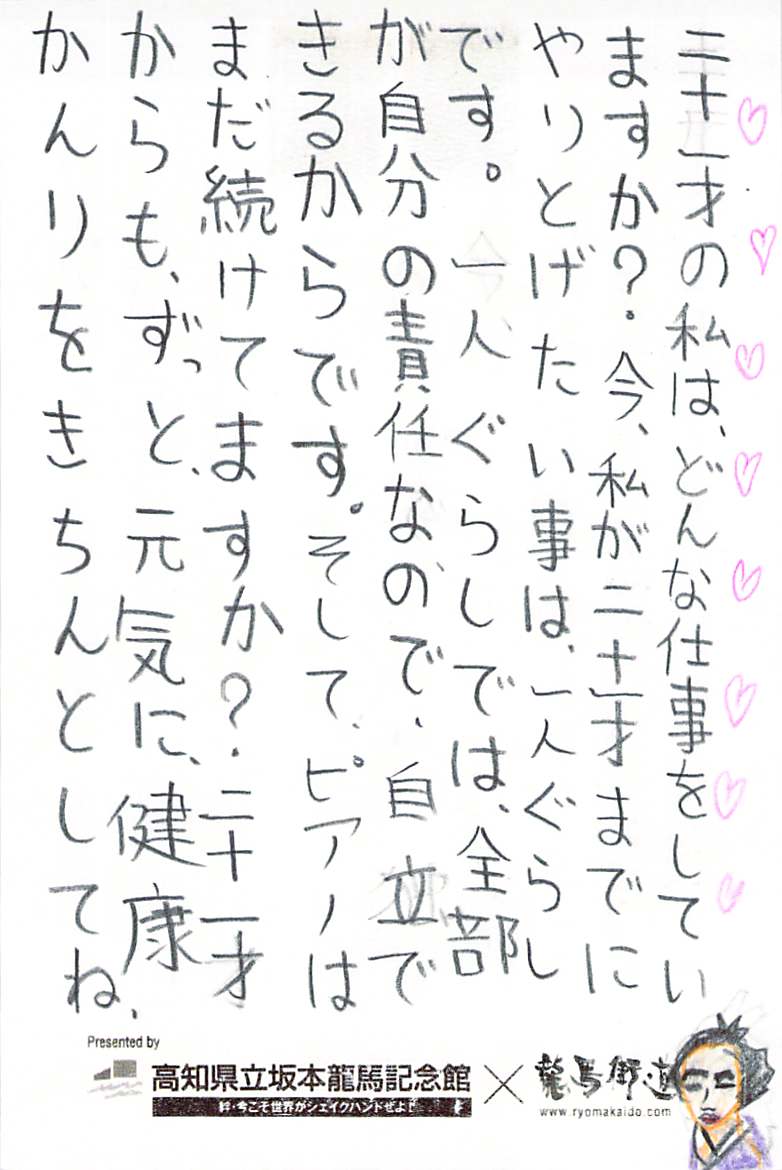 二十一才の私は、どんな仕事をしてい
ますか?今、私が二十一才までに
やりとげたい事は、一人ぐらし
です。一人ぐらしでは、全部
が自分の責任なので、自立で
きるからです。そして、ピアノは
まだ続けてますか?二十一才
からも、ずっと、元気に、健康
かんりをきちんとしてね、
Presented by
高知県立坂本龍馬記念館
絆・今こそ世界がシェイクハンドぜよ!
×
龍馬街道
www.ryomakaido.com